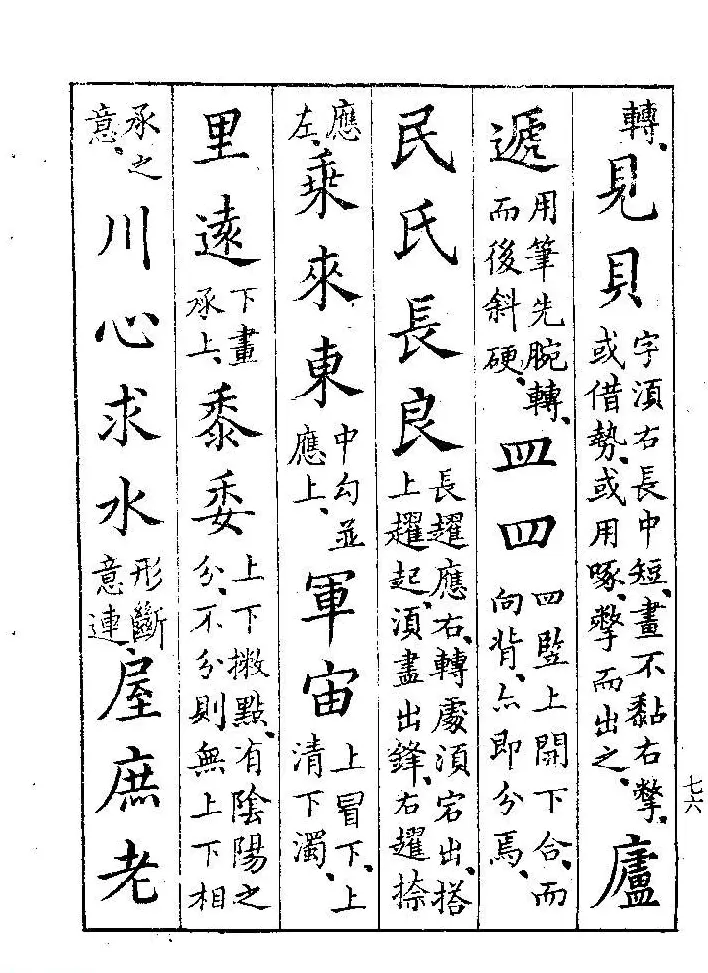 轉、見貝字須右長中短、畫不黏右撆、或借勢、或用啄、撆而出之、廬
遞用筆先腕轉、而後斜硬、皿四四竪上開下合、而向背、亦即分焉、
民氏長良長趯應右、轉處須宕出、搭上趯起、須盡出鋒、右趯捺
應左、乗來東中勾並應上、軍宙上冒下、上清下濁、
里逺下畫承上、黍委上下撇點、有隂陽之分、不分則無上下相
承之意、川心求水形斷意連、屋庶老
七六